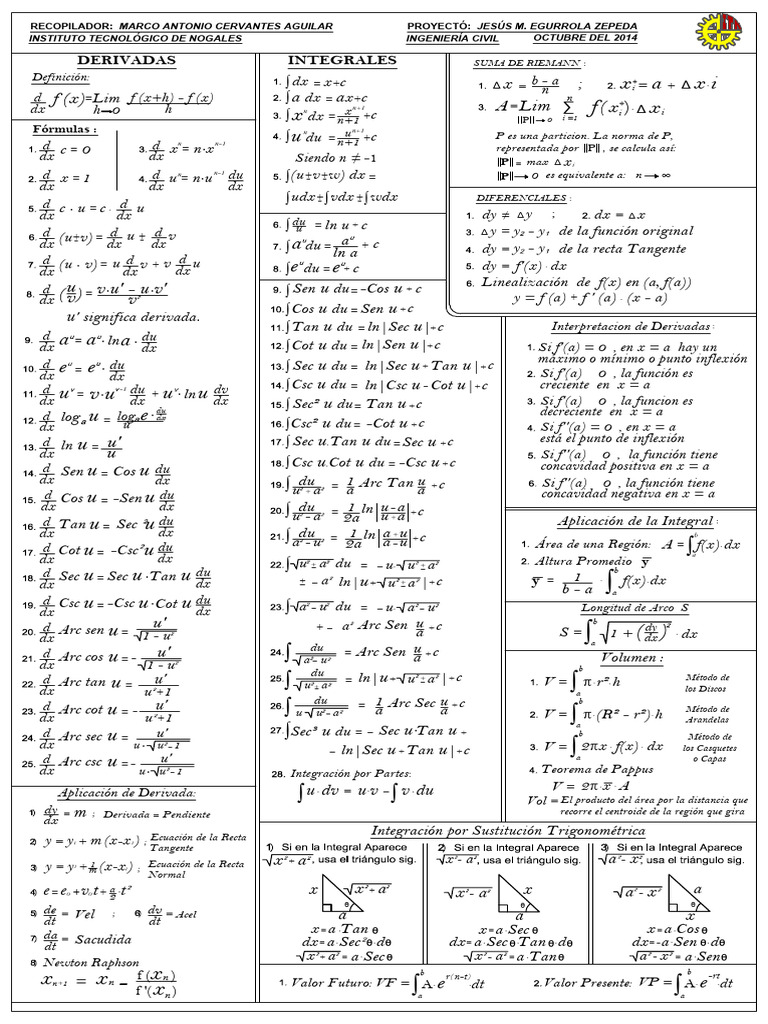 RECOPILADOR: MARCO ANTONIO CERVANTES AGUILAR
PROYECTÓ: JESÚS M. EGURROLA ZEPEDA
INSTITUTO TECNOLÓGICO DE NOGALES
INGENIERÍA CIVIL
OCTUBRE DEL 2014
DERIVADAS
Definición:
d/dx f(x)=Lim h→0 f(x+h) - f(x) / h
Fórmulas :
1. d/dx c = 0
3. d/dx xⁿ = n·xⁿ⁻¹
2. d/dx x = 1
4. d/dx uⁿ = n·uⁿ⁻¹ du/dx
5. d/dx c · u = c · d/dx u
6. d/dx (u±v) = d/dx u ± d/dx v
7. d/dx (u · v) = u d/dx v + v d/dx u
8. d/dx (u/v) = v·u' - u·v' / v²
u' significa derivada.
9. d/dx aᵘ = aᵘ·lna · du/dx
10. d/dx eᵘ = eᵘ· du/dx
11. d/dx uᵛ = v·uᵛ⁻¹ du/dx + uᵛ·lnu dv/dx
12. d/dx logₐu = logₐe/u · du/dx
13. d/dx ln u = u'/u
14. d/dx Sen u = Cos u du/dx
15. d/dx Cos u = -Sen u du/dx
16. d/dx Tan u = Sec²u du/dx
17. d/dx Cot u = -Csc²u du/dx
18. d/dx Sec u = Sec u·Tan u du/dx
19. d/dx Csc u = -Csc u·Cot u du/dx
20. d/dx Arc sen u = u' / √1 - u²
21. d/dx Arc cos u = - u' / √1 - u²
22. d/dx Arc tan u = u' / u²+1
23. d/dx Arc cot u = - u' / u²+1
24. d/dx Arc sec u = u' / u·√u²-1
25. d/dx Arc csc u = - u' / u·√u²-1
Aplicación de Derivada:
1) dy/dx = m ; Derivada = Pendiente
2) y = y₁ + m (x-x₁) ; Ecuación de la Recta
Tangente
3) y = y₁ + 1/m (x-x₁) ; Ecuación de la Recta
Normal
4) e = e₀+v₀t+ a/2 ·t²
5) de/dt = Vel ; 6) dv/dt = Acel
7) da/dt = Sacudida
8) Newton Raphson
xₙ₊₁ = xₙ - f(xₙ) / f'(xₙ)
INTEGRALES
1. ∫dx = x+c
2. ∫a dx = ax+c
3. ∫xⁿdx = xⁿ⁺¹/n+1 +c
4. ∫uⁿdu = uⁿ⁺¹/n+1 +c
Siendo n ≠ -1
5. ∫(u+v+w) dx =
∫udx±∫vdx±∫wdx
6. ∫du/u = ln u + c
7. ∫aᵘdu = aᵘ/ln a + c
8. ∫eᵘdu = eᵘ + c
9. ∫Sen u du= -Cos u +c
10. ∫Cos u du = Sen u +c
11. ∫Tan u du = ln|Sec u|+c
12. ∫Cot du = ln|Sen u|+c
13. ∫Sec u du = ln|Sec u + Tan u|+c
14. ∫Csc du = ln|Csc u - Cot u|+c
15. ∫Sec² u du= Tan u +c
16. ∫Csc² u du = -Cot u +c
17. ∫Sec u.Tan u du = Sec u +c
18. ∫Csc u.Cot u du = -Csc u +c
19. ∫du/u² + a² = 1/a Arc Tan u/a +c
20. ∫du/u² - a² = 1/2a ln|u-a/u+a|+c
21. ∫du/a² - u² = 1/2a ln|a+u/a-u|+c
22. ∫√u² ± a² du = -u·√u² ± a²
± - a² ln|u+√u² ± a²|+c
23. ∫√a² - u² du = -u·√a² - u²
+ - a² Arc Sen u/a +c
24. ∫du/√a² - u² = Arc Sen u/a +c
25. ∫du/√u² ± a² = ln|u+√u² ± a²|+c
26. ∫du/u√u² - a² = 1/a Arc Sec u/a +c
27. ∫Sec³ u du = - Sec u·Tan u +
- ln|Sec u + Tan u|+c
28. Integración por Partes:
∫u·dv = u·v -∫v·du
SUMA DE RIEMANN :
1. Δx = b - a / n ; 2. xᵢ*= a + Δx·i
3. A=Lim ||P||→0 Σ i=1 n f(xᵢ*)·Δxᵢ
P es una particion. La norma de P,
representada por ||P|| , se calcula así:
||P|| = max Δxᵢ
||P||→0 es equivalente a: n→∞
DIFERENCIALES :
1. dy ≠ Δy ; 2. dx = Δx
3. Δy = y₂ - y₁ de la función original
4. dy = y₂ - y₁ de la recta Tangente
5. dy = f'(x)·dx
6. Linealización de f(x) en (a, f(a))
y = f(a) + f'(a)·(x - a)
Interpretacion de Derivadas:
1. Si f'(a) = 0 , en x = a hay un
máximo o mínimo o punto inflexión
2. Si f'(a) 0 , la función es
creciente en x = a
3. Si f'(a) 0 , la funcion es
decreciente en x = a
4. Si f''(a) = 0 , en x = a
está el punto de inflexión
5. Si f''(a) 0 , la función tiene
concavidad positiva en x = a
6. Si f''(a) 0 , la función tiene
concavidad negativa en x = a
Aplicación de la Integral:
1. Área de una Región: A =∫ₐᵇf(x)·dx
2. Altura Promedio y̅
y̅ = 1/b - a · ∫ₐᵇf(x)·dx
Longitud de Arco S
S =∫ₐᵇ√1 + (dy/dx)² · dx
Volumen :
1. V =∫ₐᵇπ·r²·h Método de
los Discos
2. V =∫ₐᵇπ·(R² - r²)·h Método de
Arandelas
3. V =∫ₐᵇ2πx·f(x)·dx Método de
los Casquetes
o Capas
4. Teorema de Pappus
V = 2π·x̅·A
Vol = El producto del área por la distancia que
recorre el centroide de la región que gira
Integración por Sustitución Trigonométrica
1) Si en la Integral Aparece
√x²+ a², usa el triángulo sig.
x √x²+ a² θ a
x=a·Tan θ
dx=a·Sec²θ·dθ
√x²+ a² = a·Sec θ
2) Si en la Integral Aparece
√x²- a², usa el triángulo sig.
√x²- a² x θ a
x=a·Sec θ
dx=a·Sec θ·Tan θ·dθ
√x²- a² = a·Tan θ
3) Si en la Integral Aparece
√a²- x², usa el triángulo sig.
√a²- x² a θ x
x=a·Cos θ
dx=-a·Sen θ·dθ
√a²- x² = a·Sen θ
1. Valor Futuro: VF =∫ₐᵇA·e^r(n-t)·dt
2. Valor Presente: VP =∫ₐᵇA·e^-rt·dt